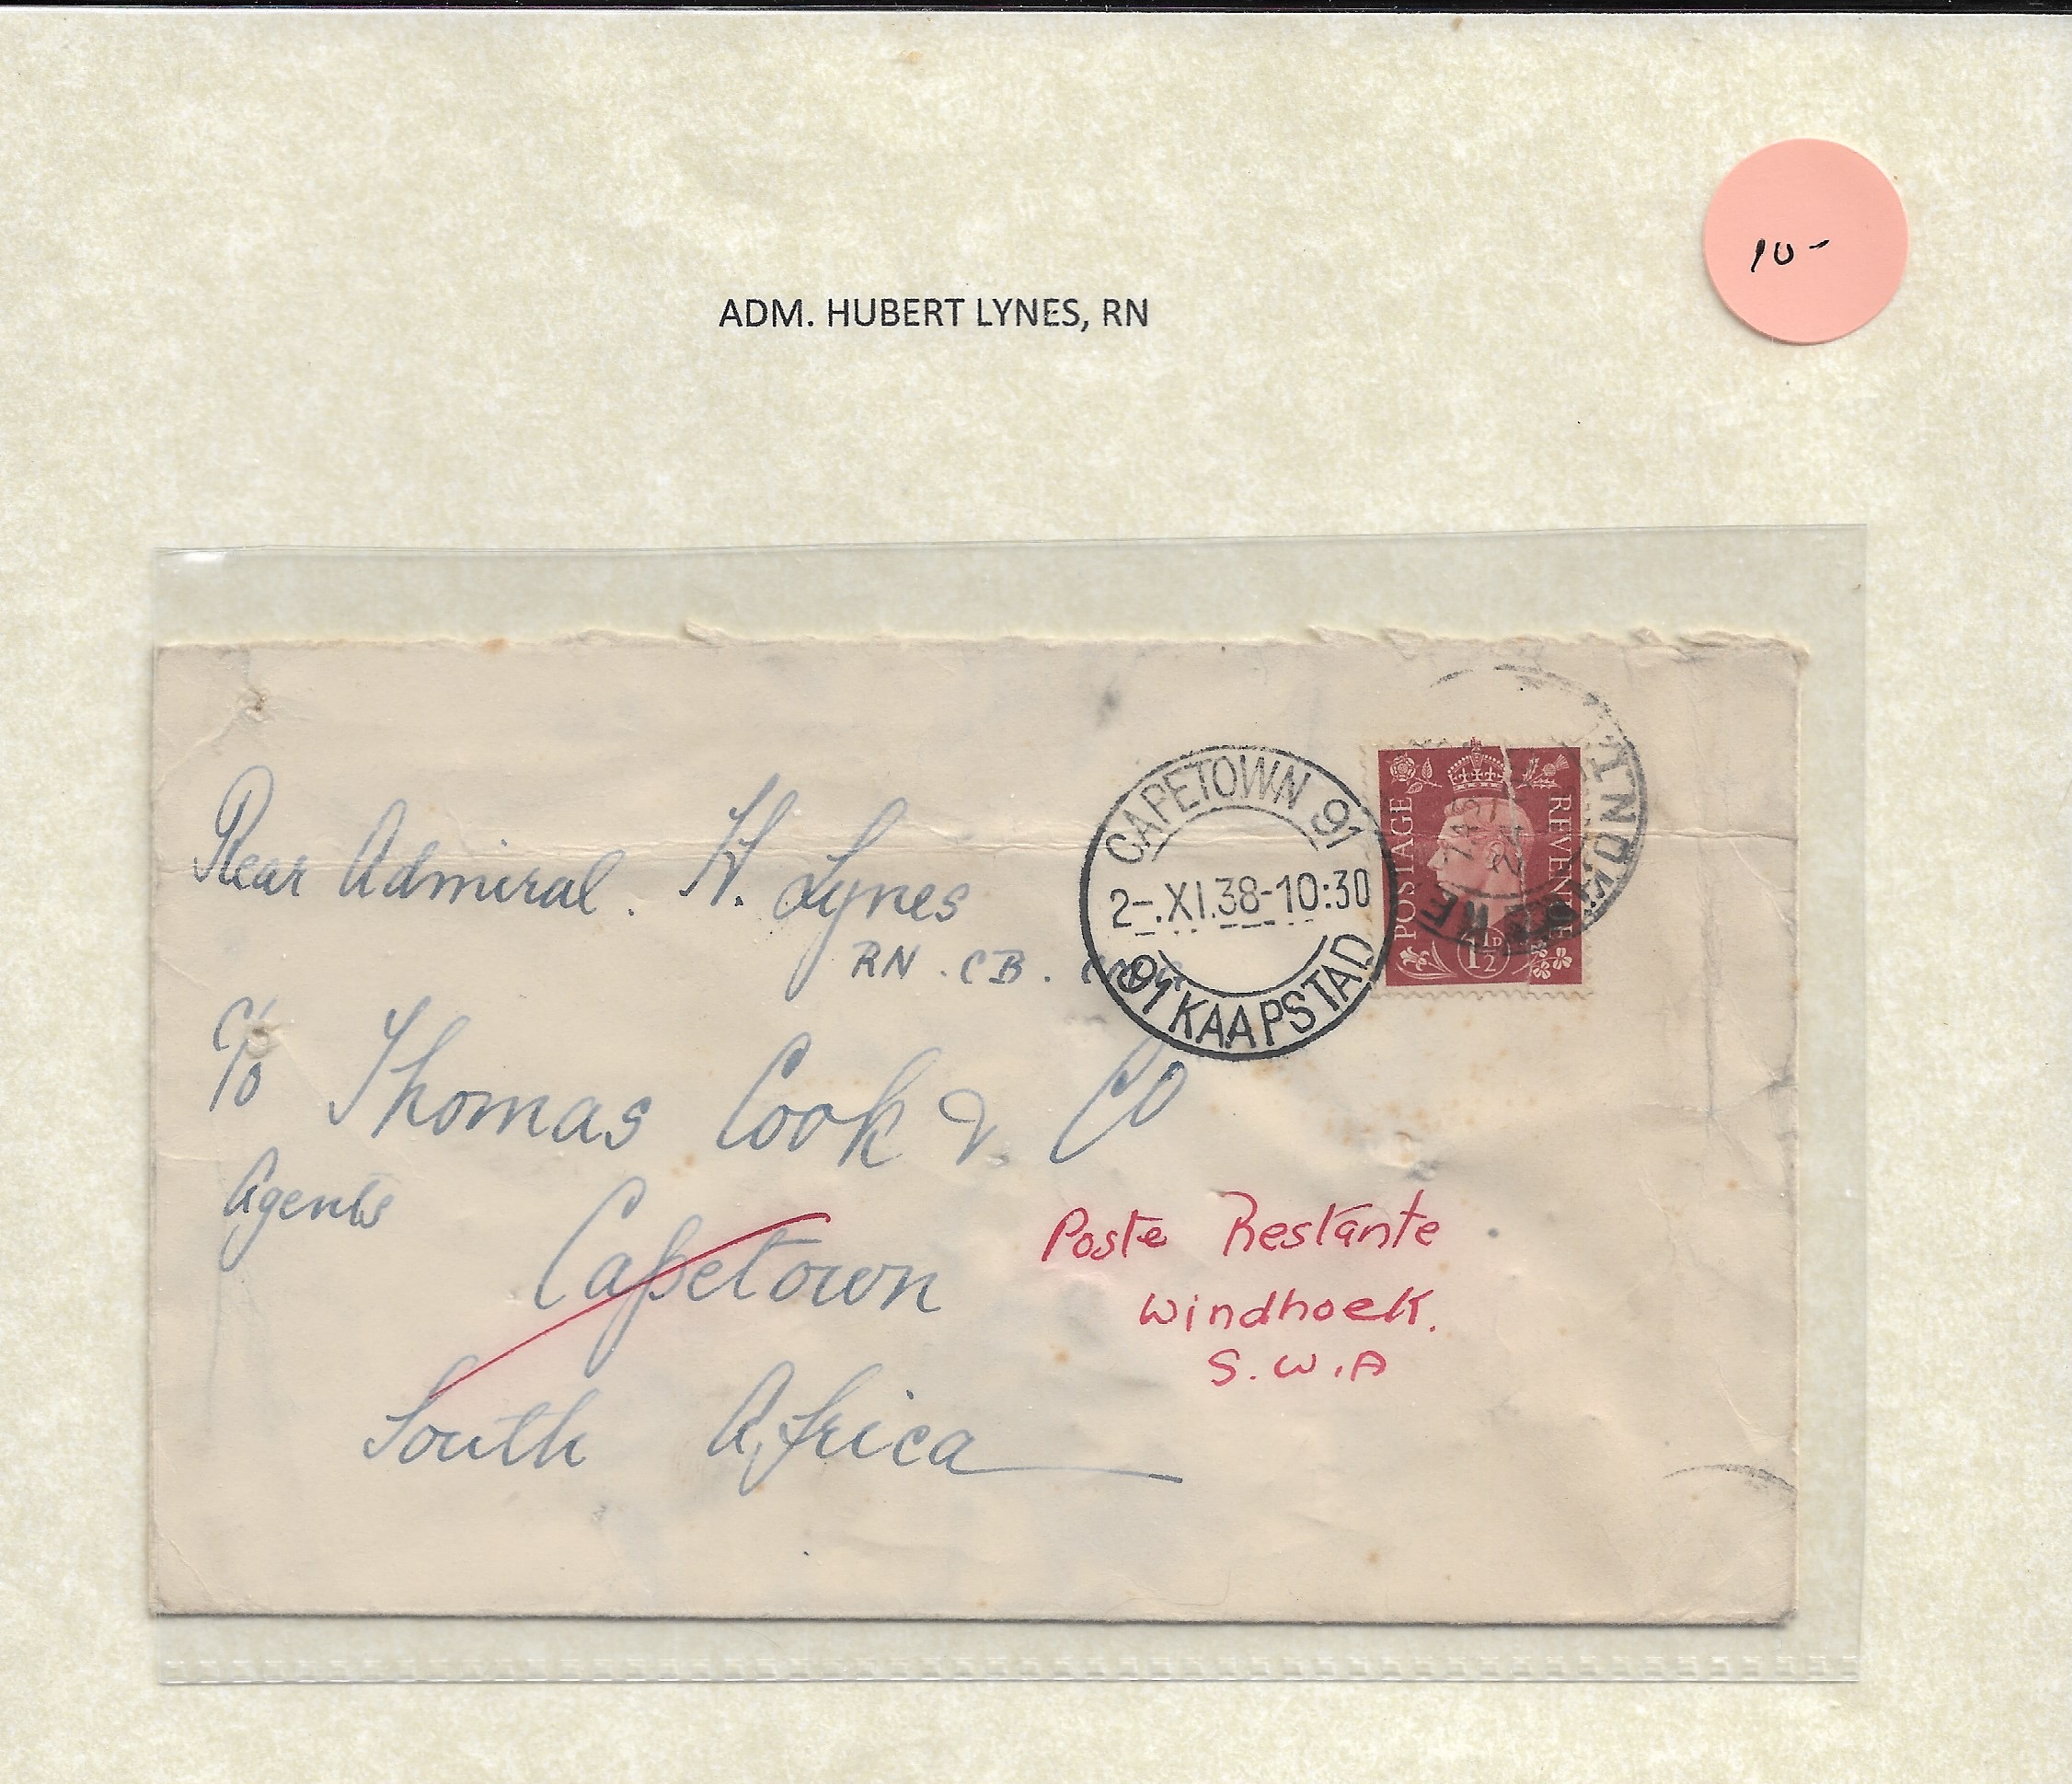 10-
ADM. HUBERT LYNES, RN
Rear Admiral. H. Lynes
RN. CB.
c/o Thomas Cook & Co
Agents
Capetown
South Africa
Poste Restante
Windhoek.
S.W.A
CAPETOWN 91
2-.XI.38-10:30
91 KAAPSTAD
POSTAGE
REVENUE
1½D